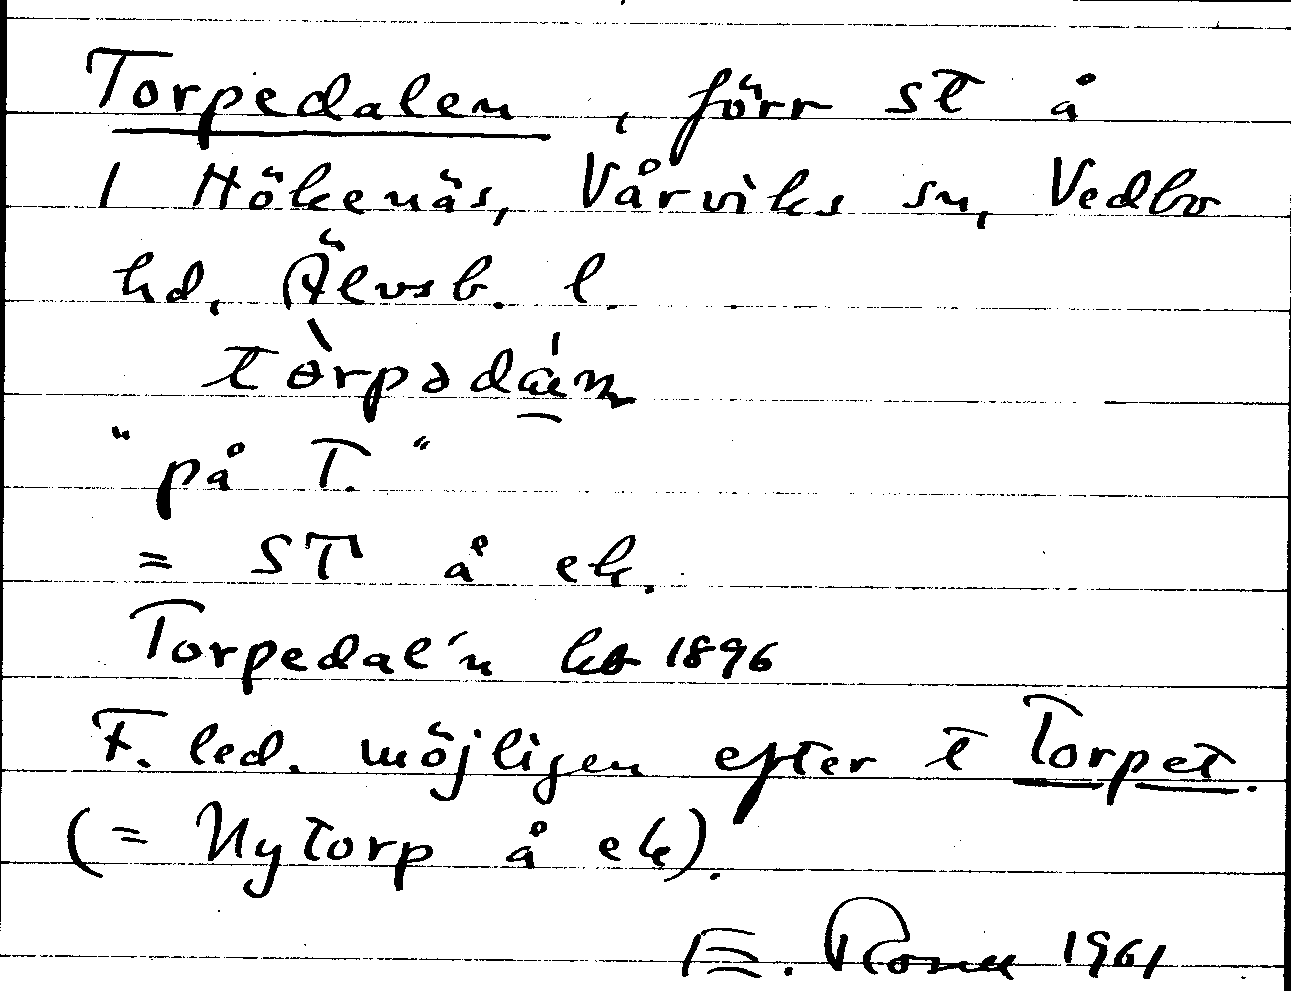 Torpedalen, förr st å
1 Hökenäs, Vårviks sn, Vedbo
hd, Älvsb. l.
tòrpədáln
"på T."
= ST å ek.
Torpedal'n kb 1896
F. led. möjligen efter t Torpet.
(= Nytorp å ek).
E. 1961